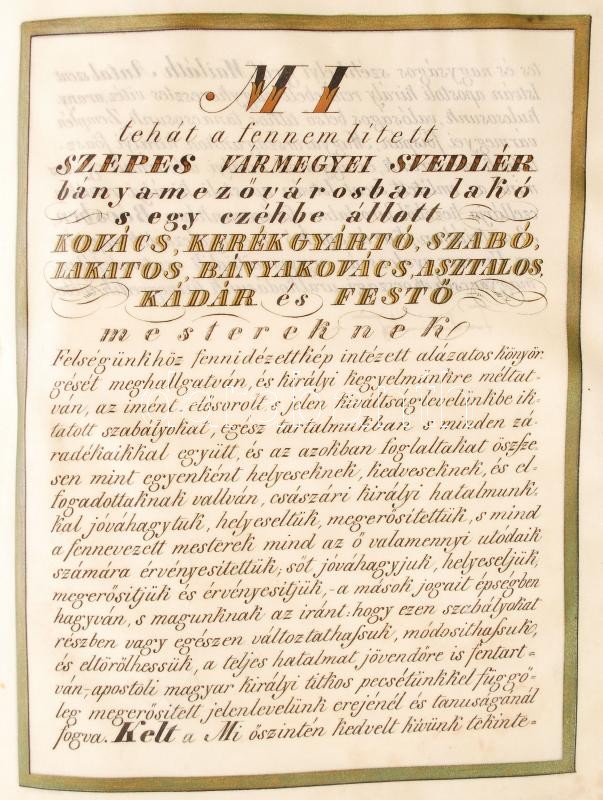 MI
tehát a fennemlített
SZEPES VÁRMEGYEI SVEDLÉR
bánya-mezővárosban lakó
s egy czéhbe állott
KOVÁCS, KERÉKGYÁRTÓ, SZABÓ,
LAKATOS, BÁNYAKOVÁCS, ASZTALOS,
KÁDÁR és FESTŐ
mestereknek
Felségünkhöz fennidézettkép intézett alázatos könyör-
gését meghallgatván, és királyi kegyelmünkre méltat-
ván, az imént elősorolt s jelen kiváltságlevelünkbe ik-
tatott szabályokat, egész tartalmukban s minden zá-
radékaikkal együtt, és az azokban foglaltakat öszsze-
sen mint egyenként helyeseknek, kedveseknek, és el-
fogadottaknak vallván, császári királyi hatalmunk-
kal jóváhagytuk, helyeseltük, megerősítettük, s mind
a fennevezett mesterek mind az ő valamennyi utódaik
számára érvényesítettük; sőt jóváhagyjuk, helyeseljük,
megerősitjük és érvényesitjük, - a mások jogait épségben
hagyván, s magunknak az iránt: hogy ezen szabályokat
részben vagy egészen változtathassuk, módosithassuk,
és eltörölhessük, a teljes hatalmat jövendőre is fentart-
ván,- apostoli magyar királyi titkos pecsétünkkel függő-
leg megerősített jelenlevelünk erejénél és tanuságánál
fogva. Kelt a Mi őszintén kedvelt hivünk tekinte-